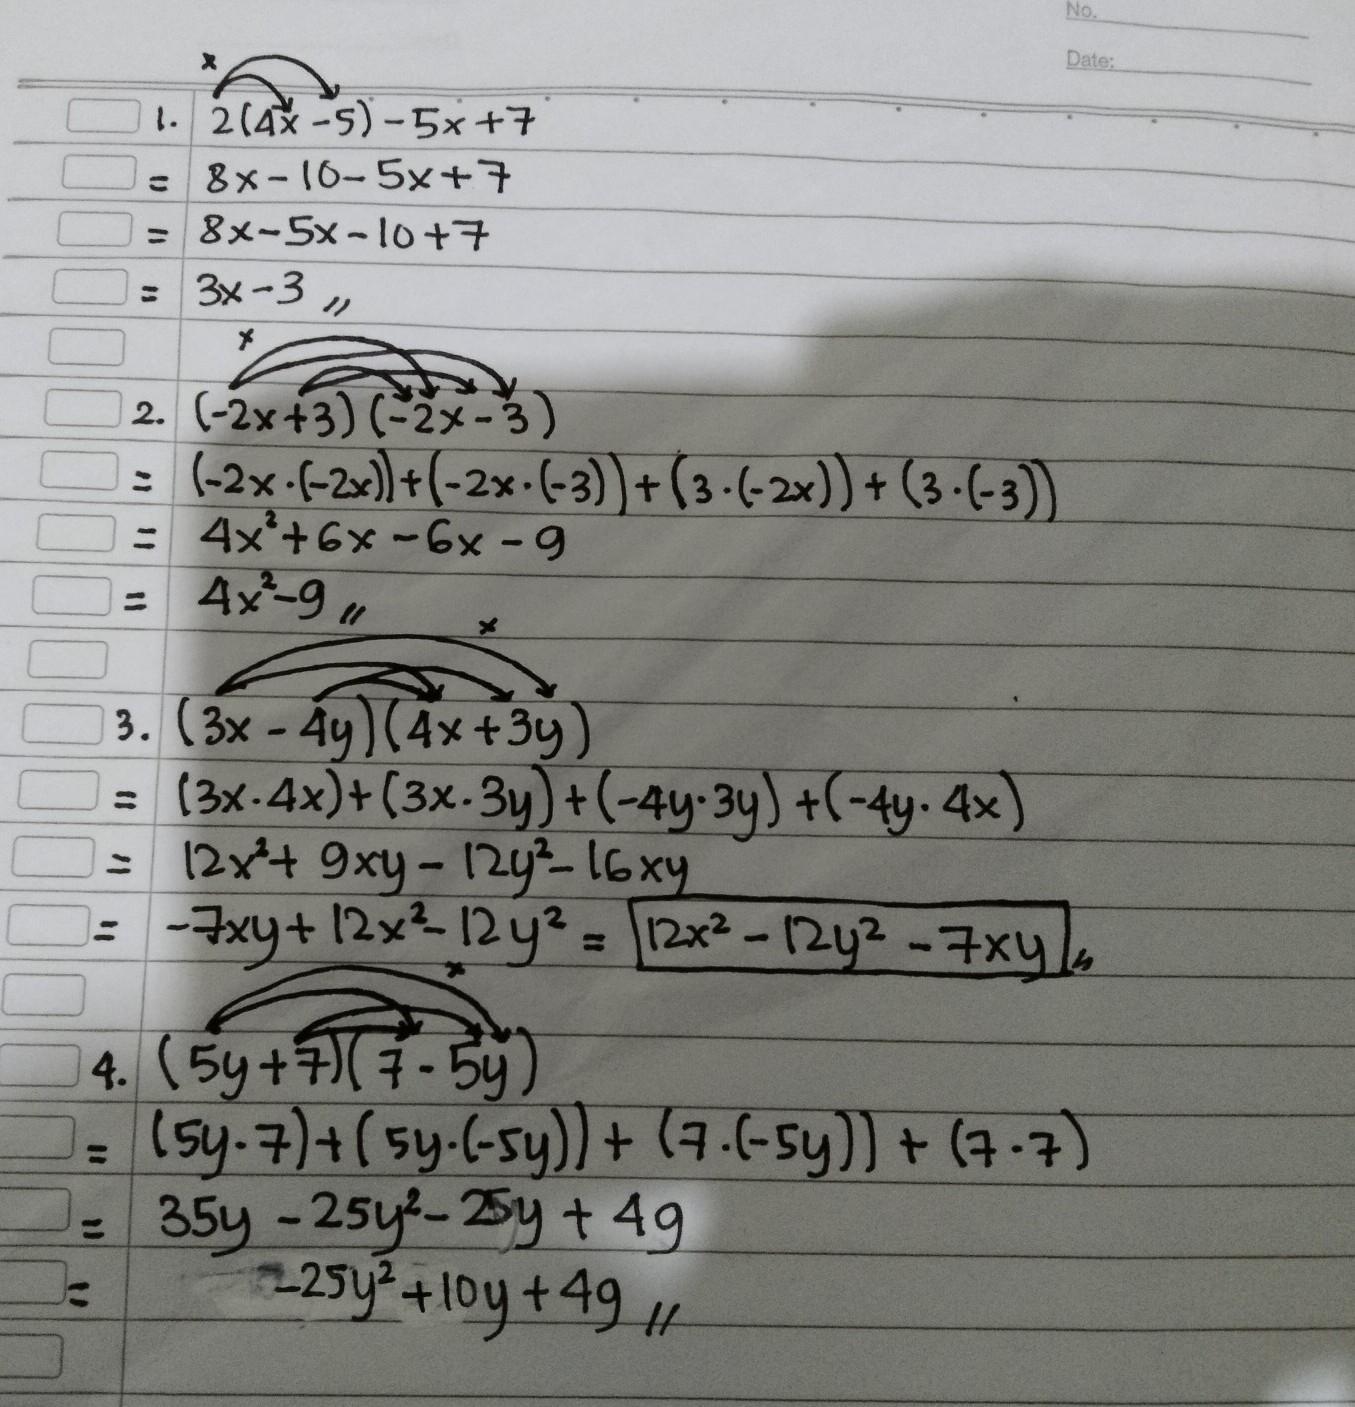 No.
Date:
x
1. 2(4x-5)-5x+7
= 8x-10-5x+7
= 8x-5x-10+7
= 3x-3 //
x
2. (-2x+3)(-2x-3)
= (-2x·(-2x))+(-2x·(-3))+(3·(-2x))+(3·(-3))
= 4x²+6x-6x-9
= 4x²-9 //
x
3. (3x-4y)(4x+3y)
= (3x·4x)+(3x·3y)+(-4y·3y)+(-4y·4x)
= 12x²+9xy-12y²-16xy
= -7xy+12x²-12y² = 12x²-12y²-7xy //
x
4. (5y+7)(7-5y)
= (5y·7)+(5y·(-5y))+(7·(-5y))+(7·7)
= 35y-25y²-25y+49
= -25y²+10y+49 //